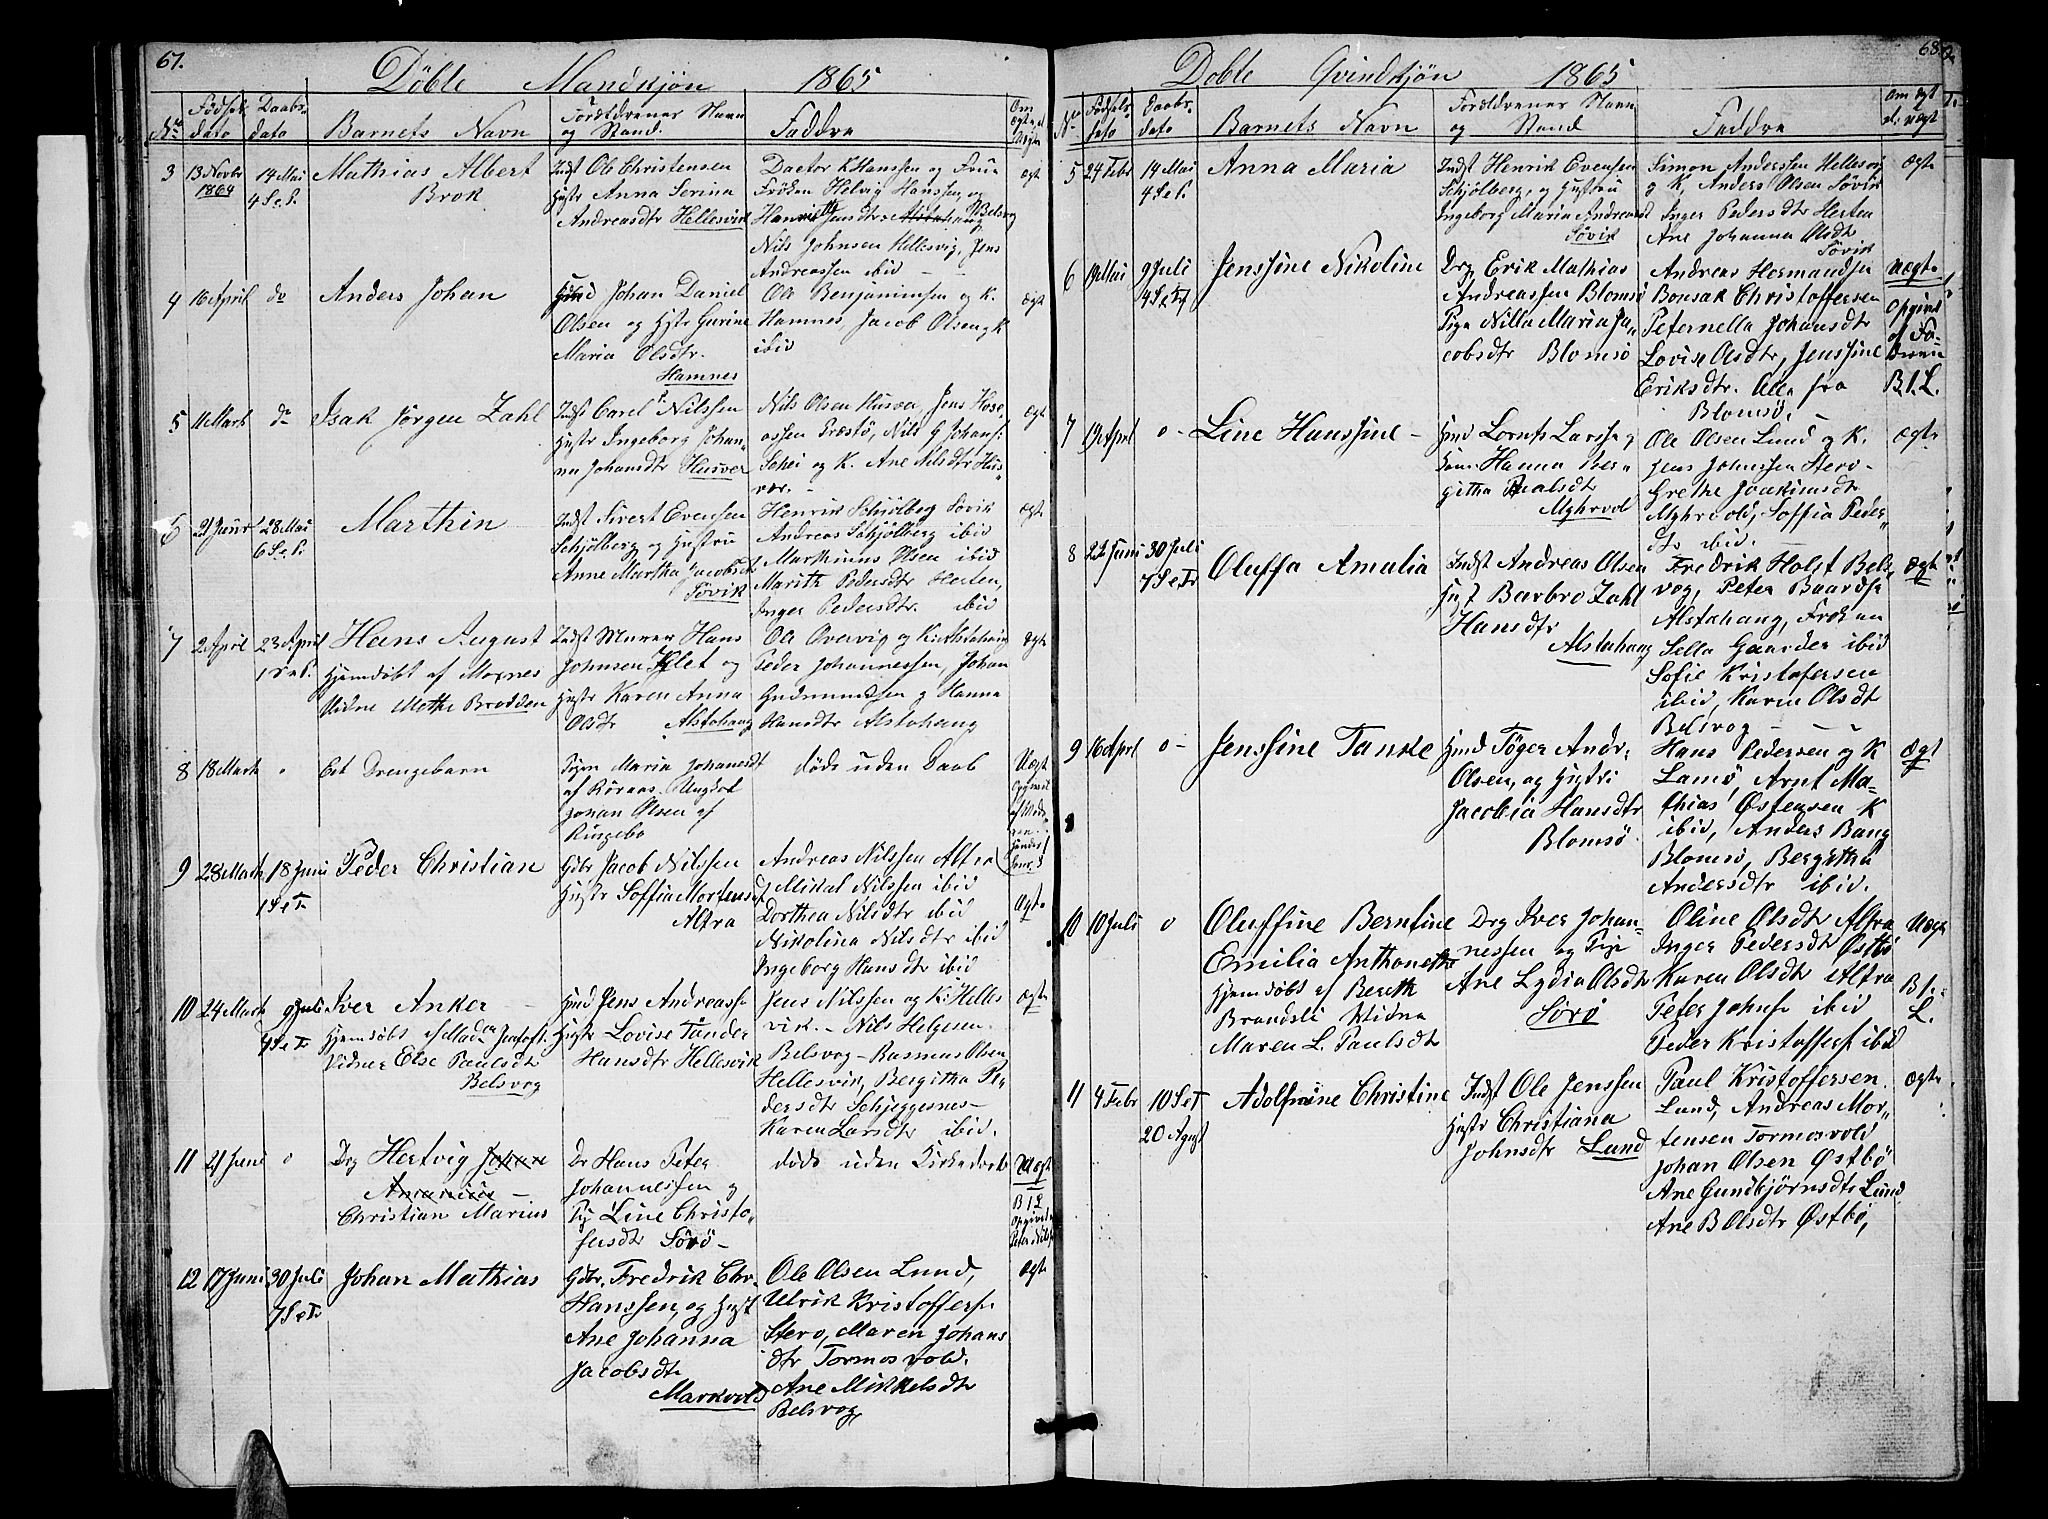 67.
Döbte Mandkjøn 1865
No Fødsels dato Daabs dato Barnets Navn Forældrenes Navn og Stand. Faddre Om Ægte el. Uægte
3 13 Novbr 1864 14 Mai 4 S. e. P. Mathias Albert Brok
Indst Ole Christensen
Hustr Anna Serina
Andreasdtr Hellesvik
Doctor K Hanssen og Frue
Frøken Helvig Hanssen og
Nils Johnsen Hellesvig, Jens
Andreassen ibid
ægt
4 16 April do Anders Johan
Johan Daniel
Olsen og Hustr Gurine
Maria Olsdtr.
Hamnes
Ole Benjaminsen og K.
Hamnes, Jacob Olsen og K
ibid
ægt
5 11 Marts do Isak Jørgen Zahl
Indst Carel P. Nilssen
Hustr Ingeborg Johan-
na Johansdtr Husvær
Nils Olsen Husvær, Jens Hose-
assen Præstö, Nils G Johans:
Schei og K. Ane Nilsdtr Hus-
vær.
ægt
6 21 Januar 28 Mai 6 S. e. P. Marthin
Indst Sivert Evensen
Schjølberg og Hustru
Anne Martha Jacobsdt
Søvik
Henrik Schjölberg Søvik
Andreas Schjölberg ibid
Markinus Olsen ibid
Marith Pedersdtr Herten,
Inger Pedersdtr. ibid
ægt
7 2 April 23 April 1 S. e. P. Hans August
Hjemdöbt af Moxnes
Vidne Mothe Brodden
Indst Murer Hans
Johnsen Klet og
Hustr Karen Anna
Olsdtr Alstahaug
Ole Overvig og K. Alstahaug
Peder Johannessen, Johan
Gudmundsen og Hanna
Hansdtr Alstahaug
ægt
8 18 Marts " Eet Drengebarn
Pigen Maria Johansdt
af Röraas. Ungkar
Johan Olsen af
Ringebo
døde uden Daab
Uægt
9 28 Marts 18 Juni 1 S e T. Peder Christian
Gdbr Jacob Nilssen
Hustr Soffia Mortensdt
Altra
Andreas Nilssen Altra
Mikal Nilssen ibid
Dorthea Nilsdtr ibid
Nikolina Nilsdtr ibid
Ingeborg Hansdtr ibid
Ægte
10 24 Marts 9 Juli 4 S e Tr Iver Anker
Hjemdöbt af
Vidner Else Paulsdtr
Belsvog
Hmd Jens Andreasse
Hustr Lovise Tønder
Hansdtr Hellesvik
Jens Nilssen og K. Helles
vik. - Nils Helgesen
Belsvog - Rasmus Olsen
Hellesvik, Bergitha Pe-
dersdtr Schjeggesnes -
Karen Larsdtr ibid.
Ægte
11 21 Juni o Drg Hertvig
Christian Marius
Dr Hans Peter
Johannessen og
Pig Line Christo-
fersdtr Sörö -
døde uden Kirkedaab
Uægt
B 1 L
Opgivet
Peter Nils
12 17 Juni 30 Juli 7 S e Tr Johan Mathias
Gdbr. Fredrik Chr.
Hanssen, og Hust
Ane Johanna
Jacobsdtr
Markvold
Ole Olsen Lund,
Ulrik Kristoffers.
Stero, Maren Johans
dtr Tormosvold.
Ane Mikkelsdtr
Belsvog,
Ægt
68.
Döbte Qvindkjøn 1865
No Fødsels dato Daabs dato Barnets Navn Forældrenes Navn og Stand Faddre Om ægt el. uægt
5 24 Febr 14 Mai 4 S e P. Anna Maria
Indst Henrik Evensen
Schjølberg, og Hustru
Ingeborg Maria Andreasd
Søvik
Simon Anderssen Hellesvig
og K, Anders Olsen Søvik
Inger Pedersdtr Herten
Ane Johanna Olsdt
Søvik
Ægte
6 19 Mai 9 Juli 4 S e Tr Jenssine Nikoline
Drg Erik Mathias
Andreassen Blomsö
Pige Nilla Maria Ja-
cobsdtr Blomsö
Andreas Hermandsen
Bonsak Christoffersen
Peternella Johansdtr
Lovise Olsdtr, Jenssine
Eriksdtr. Alle fra
Blomsö.
Uægte
B. 1. L.
7 19 April o - Line Hanssine -
Hmd Lornts Larsse og
Hanna Ber-
githa Paalsdt
Myhrvol
Ole Olsen Lund og K.
Jens Johnssen Stero -
Grethe Joakimsdt
Myhrvold, Soffia Peder-
dtr ibid.
Ægte
8 22 Juni 30 Juli 7 S e Tr Oluffa Amalia
Indst Andreas Olsen
Hust Barbro Zahl
Hansdtr
Alstahaug
Fredrik Holst Bels
vog, Peter Baardse
Alstahaug, Frøken
Sella Gaarder ibid
Sofie Kristofersen
ibid, Karen Olsdt
Belsvog
Ægt
9 16 Aprl o - Jenssine Tanke
Hmd Töger Andr.
Olsen, og Hustr
Jacobia Hansdtr
Blomsö.
Hans Pedersen og K
Lamö, Arnt Ma-
thias Østensen K
ibid, Anders Bang
Blomsö, Bergitha
Andersdtr ibid.
Ægt
10 10 Juli o Oluffine Berntine
Emilia Anthonette
Hjemdöbt af Bereth
Brandsli Vidne
Maren L. Paulsdtr
Drg Iver Johan-
nessen og Pige
Ane Lydia Olsdtr
Sörö
Oline Olsdtr Altra
Inger Pedersdtr Østbö
Karen Olsdtr Altra
Peter Johnse ibid
Peder Kristoffers ibid
Uægt
B 1. L.
11 4 Febr 10 S e T 20 Agust Adolfine Christine
Indst Ole Jenssen
Hustr Christiana
Johnsdtr Lund
Paul Kristoffersen
Lund, Andreas Mor-
tensen Tormosvold
Johan Olsen Østbö
Ane Gundbjörnsdtr Lund
Ane B Olsdtr Østbö,
Ægte